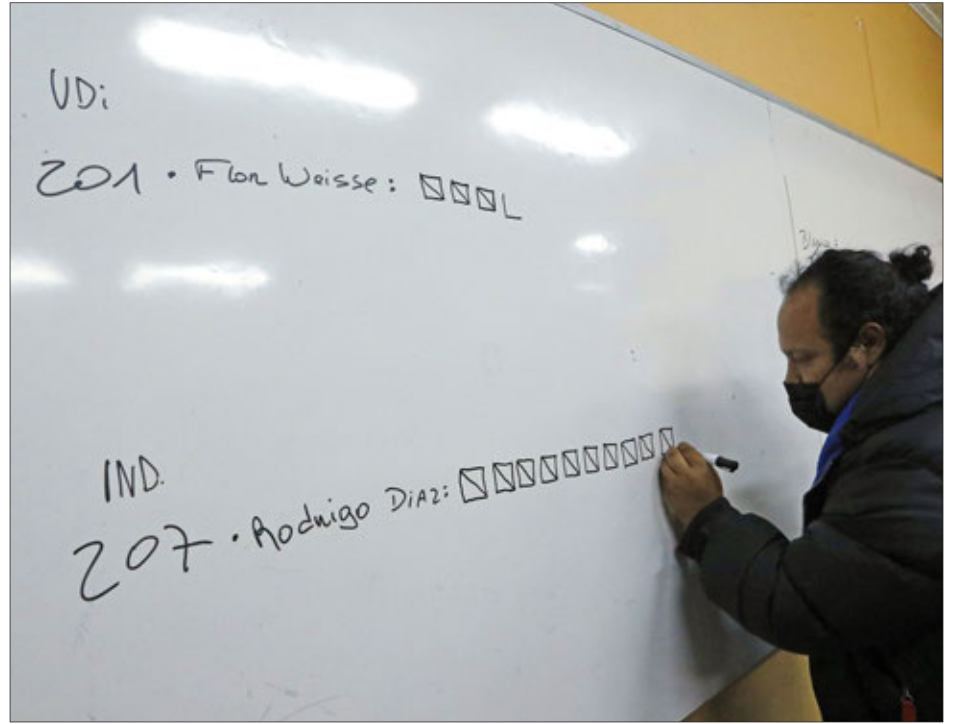 UDi
201 · Flor Weisse:
IND.
207 · Rodrigo DiAz: